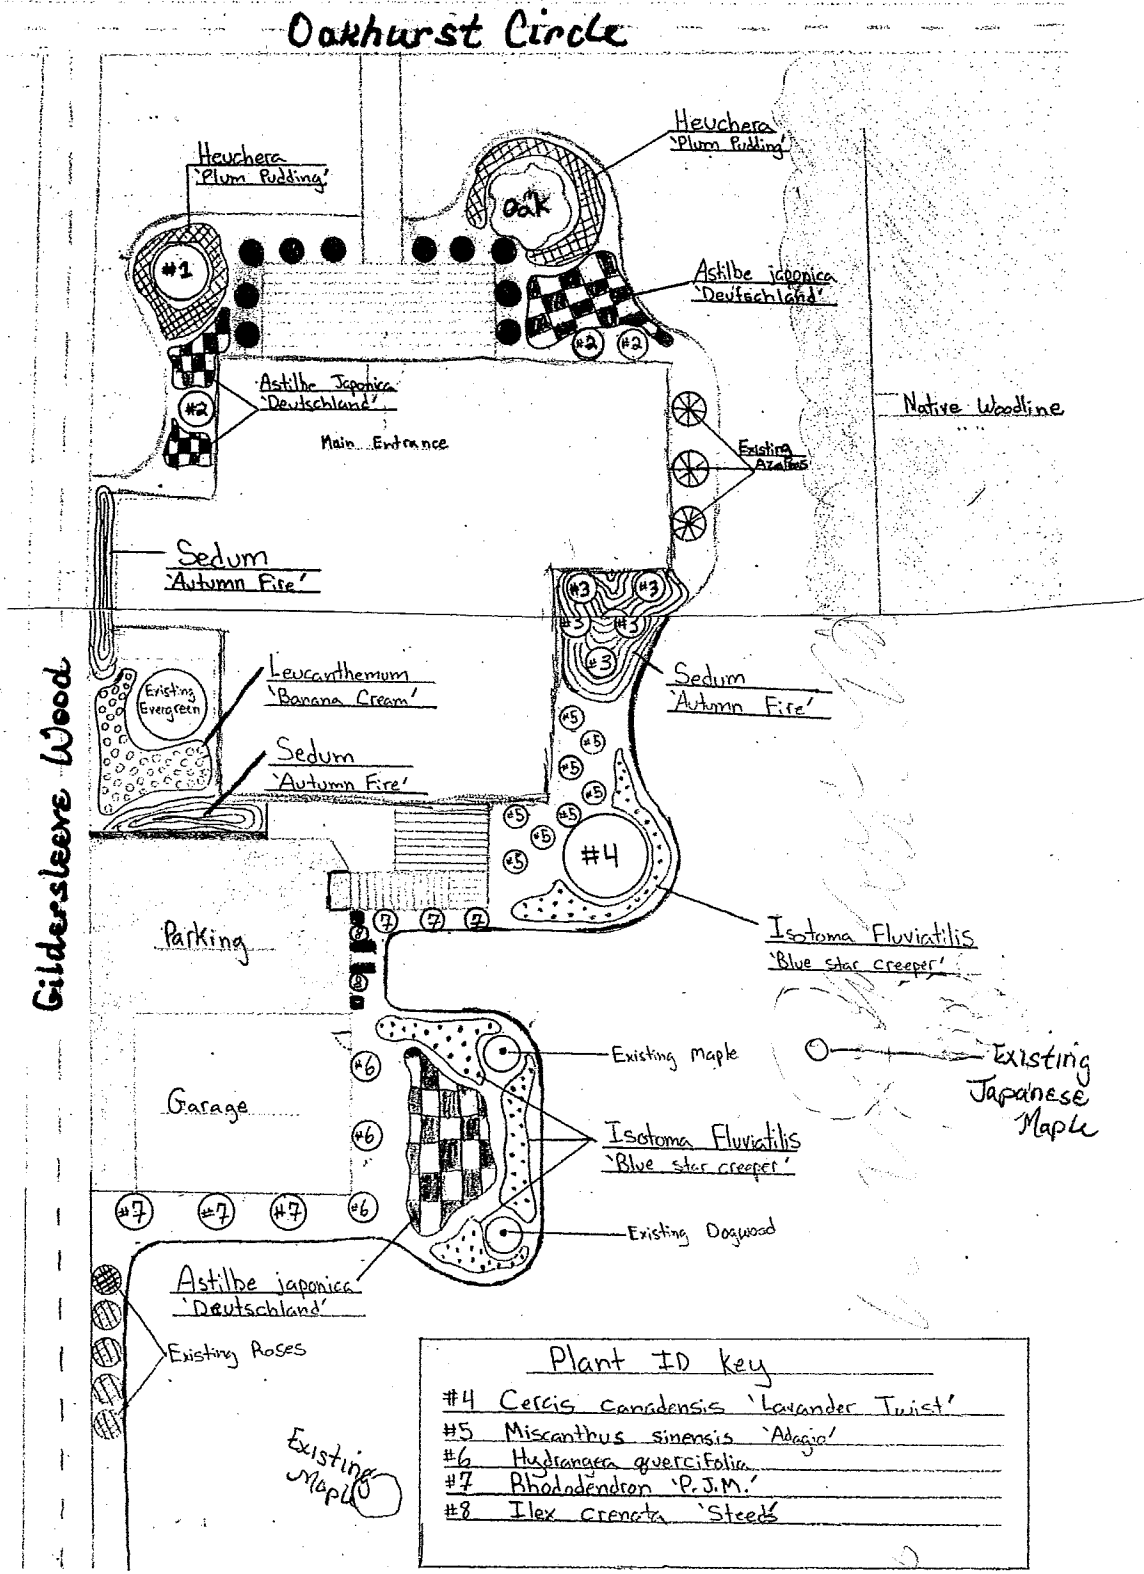 Oakhurst Circle
Heuchera
'Plum Pudding'
Heuchera
'Plum Pudding'
Oak
#1
Astilbe japonica
'Deutschland'
#2 #2
Astilbe Japonica
'Deutschland'
#2
Main Entrance
Native Woodline
Existing
Azaleas
Sedum
'Autumn Fire'
#3 #3
#3 #3
#3
Gildersleeve Wood
Leucanthemum
'Banana Cream'
Existing
Evergreen
Sedum
'Autumn Fire'
#5
#5
#5
#5
Sedum
'Autumn Fire'
#5 #5
#5
#5
#4
Parking
7 7 7
8
8
Isotoma Fluviatilis
'Blue star creeper'
Existing Maple
Existing
Japanese
Maple
#6
Garage
#6
Isotoma Fluviatilis
'Blue star creeper'
#7 #7 #7 #6
Existing Dogwood
Astilbe japonica
'Deutschland'
Existing Roses
Existing
Maple
Plant ID Key
#4 Cercis canadensis 'Lavander Twist'
#5 Miscanthus sinensis 'Adagio'
#6 Hydrangea quercifolia
#7 Rhododendron 'P.J.M.'
#8 Ilex crenata 'Steeds'